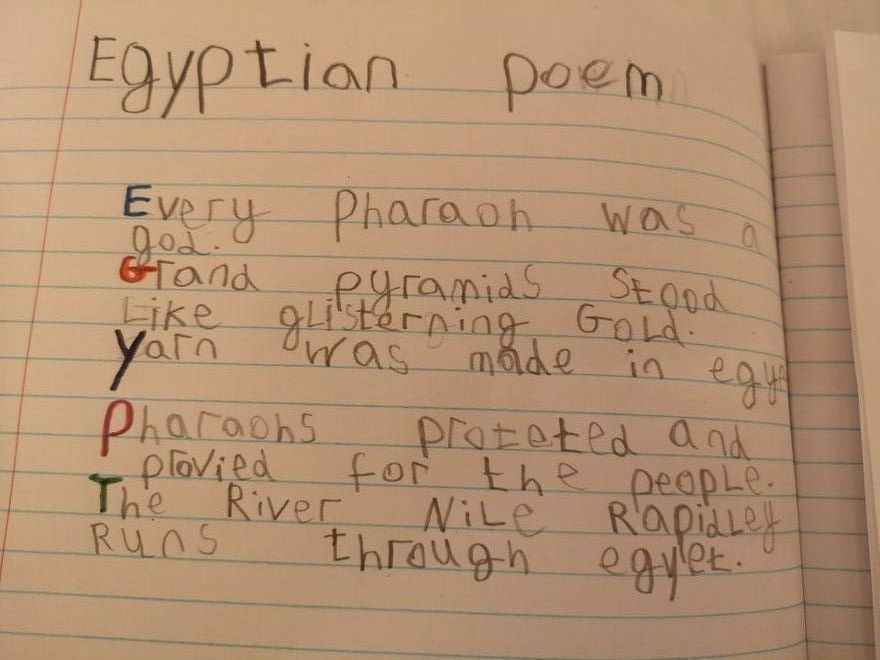 Egyptian poem
Every Pharaoh was a
god.
Grand pyramids Stood
Like glisterning Gold.
Yarn was made in egyp
Pharaohs proteted and
provied for the people.
The River Nile Rapidley
Runs through egypet.